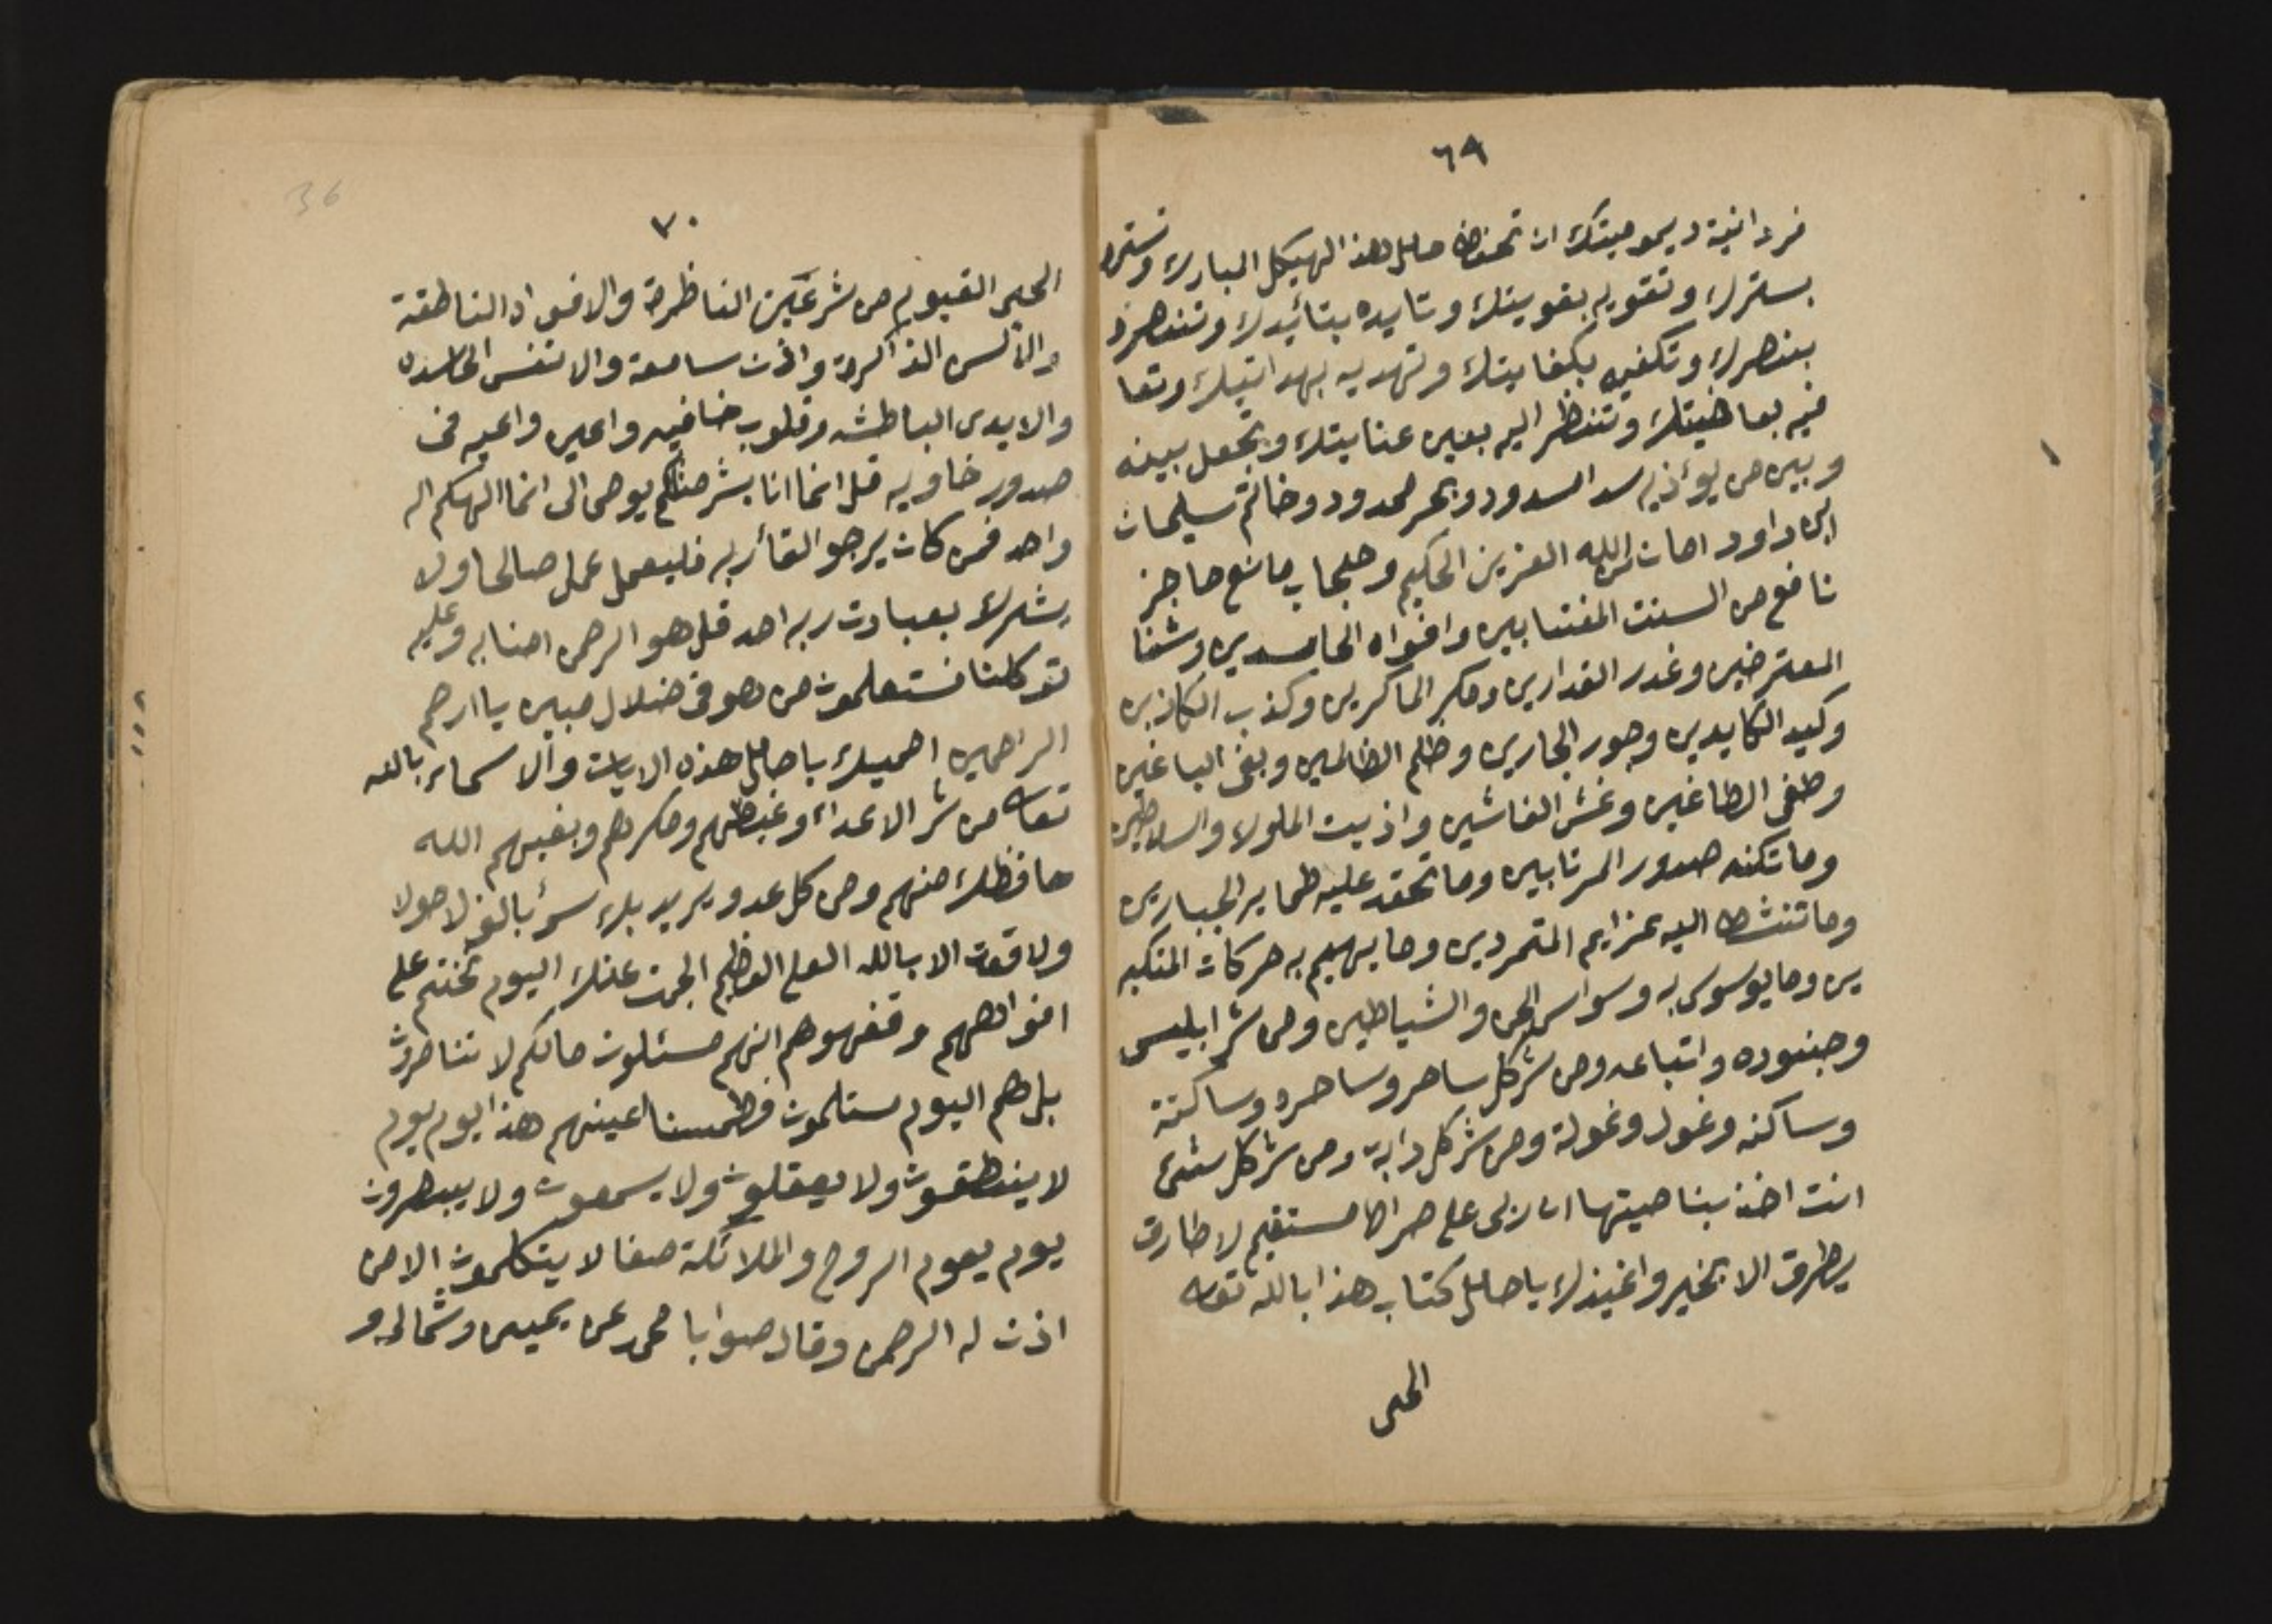 ٦٩
فردانية ديموميتك ان تحفظ حامل هذا الهيكل المبارك وتستره
بسترك وتقويه بقويتك وتايده بتائيدك وتنصره
بنصرك وتكفيه بكفايتك وتهديه بهدايتك وتعا
فيه بعافيتك وتنظر اليه بعين عنايتك وتجعل بينه
وبين من يوٴذيه سد المسدود وبحر لمحدود وخاتم سليمان
ابن داود امان من الله العزيز الحكيم وحجاب مانع حاجز
نافع من السنت المغتابين وافواه الحاسدين وشنا
المعترضين وغدر الغدارين ومكر الماكرين وكذب الكاذبين
وكيد الكايدين وجور الجارين وظلم الظالمين وبغى الباغين
وطغى الطاغين وغش الغاشين واذيت الملوك والسلاطين
وما تكنه صدور المرتابين وما تحقد عليه ضماير الجبارين
وما تنشط اليه عزايم المتمردين وما يهيم به حركات المتكبر
ين وما يوسوس به وسواس الجن والشياطين ومن شر ابليس
وجنوده واتباعه ومن شر كل ساحر وساحره وساكنة
وساكنه وغول وغولة ومن شر كل دابة ومن شر كل شئ
انت اخذ بناصيتها ان ربى على صراط مستقيم لا طارق
يطرق الا بخير واعيذك يا حامل كتاب هذا بالله تعالى
الحى
٧٠
36
الحى القيوم من شر عين الناظرة والافواه الناطقة
والألسن الذاكرة واذن سامعة والانفس الحاسده
والايدى الباطشه وقلوب خافيه واعين واعيه فى
صدور خاويه قل انما انا بشر مثلكم يوحى الى انما الهكم اله
واحد فمن كان يرجو القاٴ ربه فليعمل عمل صالحا ولا
يشرك بعبادت ربه احد قل هو الرحمن امنا به وعليه
توكلنا فستعلمون من هو فى ضلال مبين يا ارحم
الراحمين احميك يا حامل هذه الايات والاسماء بالله
تعالى من شر الاعداء وغيظهم ومكرهم وبغيهم الله
حافظك منهم ومن كل عدو يريد بك سوٴ بالف لا حولا
ولا قوت الا بالله العلى العظيم الجمت عنك اليوم نختم على
افواههم وقفهوهم انهم مسئلون مالكم لا تناصرون
بل هم اليوم مستلمون فطمسنا اعينهم هذا يوم يوم
لا ينطقون ولا يعقلون ولا يسمعون ولا يبصرون
يوم يقوم الروح والملائكة صفا لا يتكلمون الا من
اذن له الرحمن وقال صوابا محمد عن يمينى وشمالى و